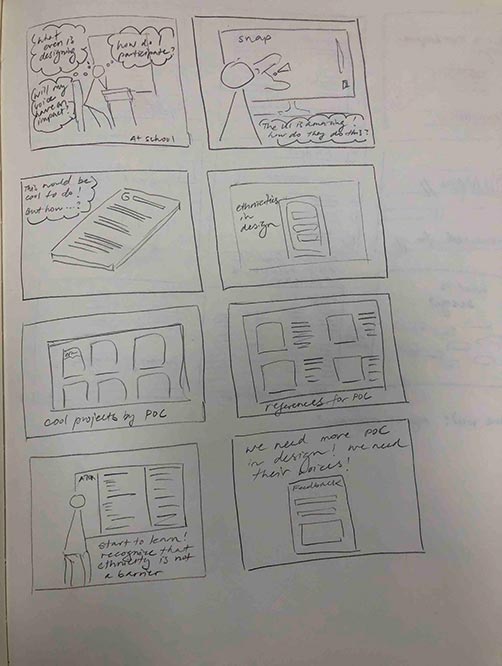 What
even is
designing
how do I
participate?
will my
voice
have an
impact?
At school
snap
The UI is amazing!
how do they do this?
This would be
cool to do!
But how...?
ethnicities
in
design
cool projects by POC
references for POC
start to learn!
recognize that
ethnicity is not
a barrier
we need more POC
in design! we need
their voices!
Feedback